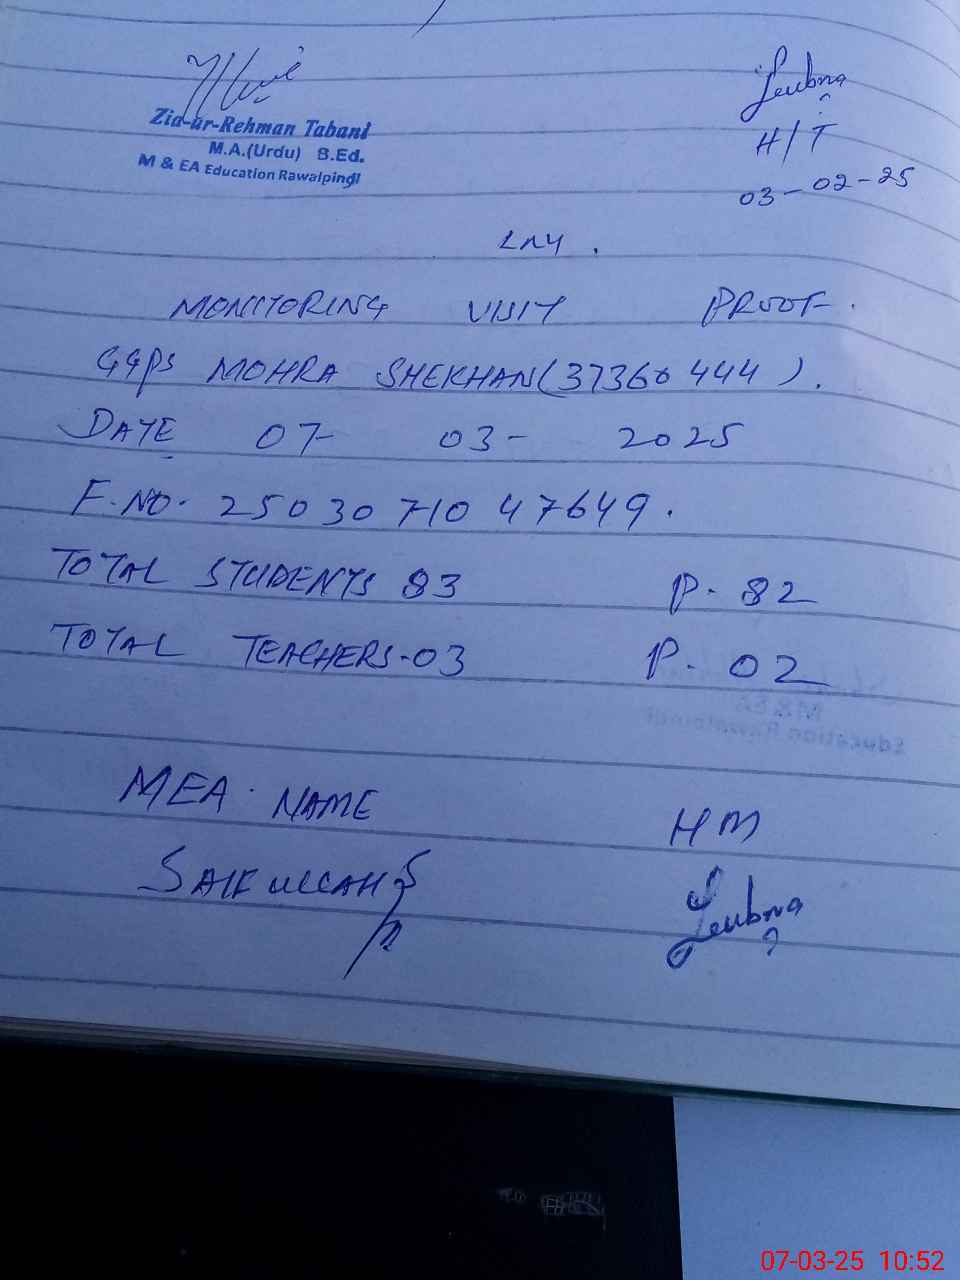 Zia-ur-Rehman Tabani
M.A.(Urdu) B.Ed.
M & EA Education Rawalpindi
Leubna
H/T
03-02-25
LNY.
MONITORING VISIT PROOF.
GGPS MOHRA SHEKHAN(37360444).
DATE 07- 03- 2025
F.NO. 2503071047649.
TOTAL STUDENTS 83 P. 82
TOTAL TEACHERS-03 P. 02
MEA. NAME HM
SAIFULLAH Leubna
07-03-25 10:52